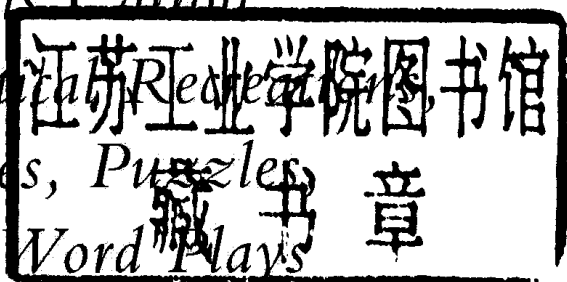 江苏工业学院图书馆
Recreations,
es, Puzzles,
藏书章
Word Plays